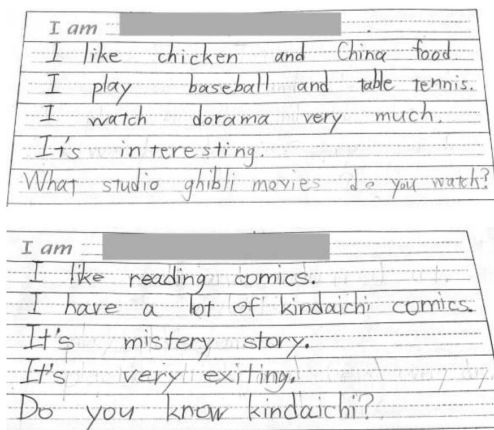 I am
I like chicken and China food.
I play baseball and table tennis.
I watch dorama very much.
It's interesting.
What studio ghibli movies do you watch?
I am
I like reading comics.
I have a lot of kindaichi comics.
It's mistery story.
It's very exiting.
Do you know kindaichi?